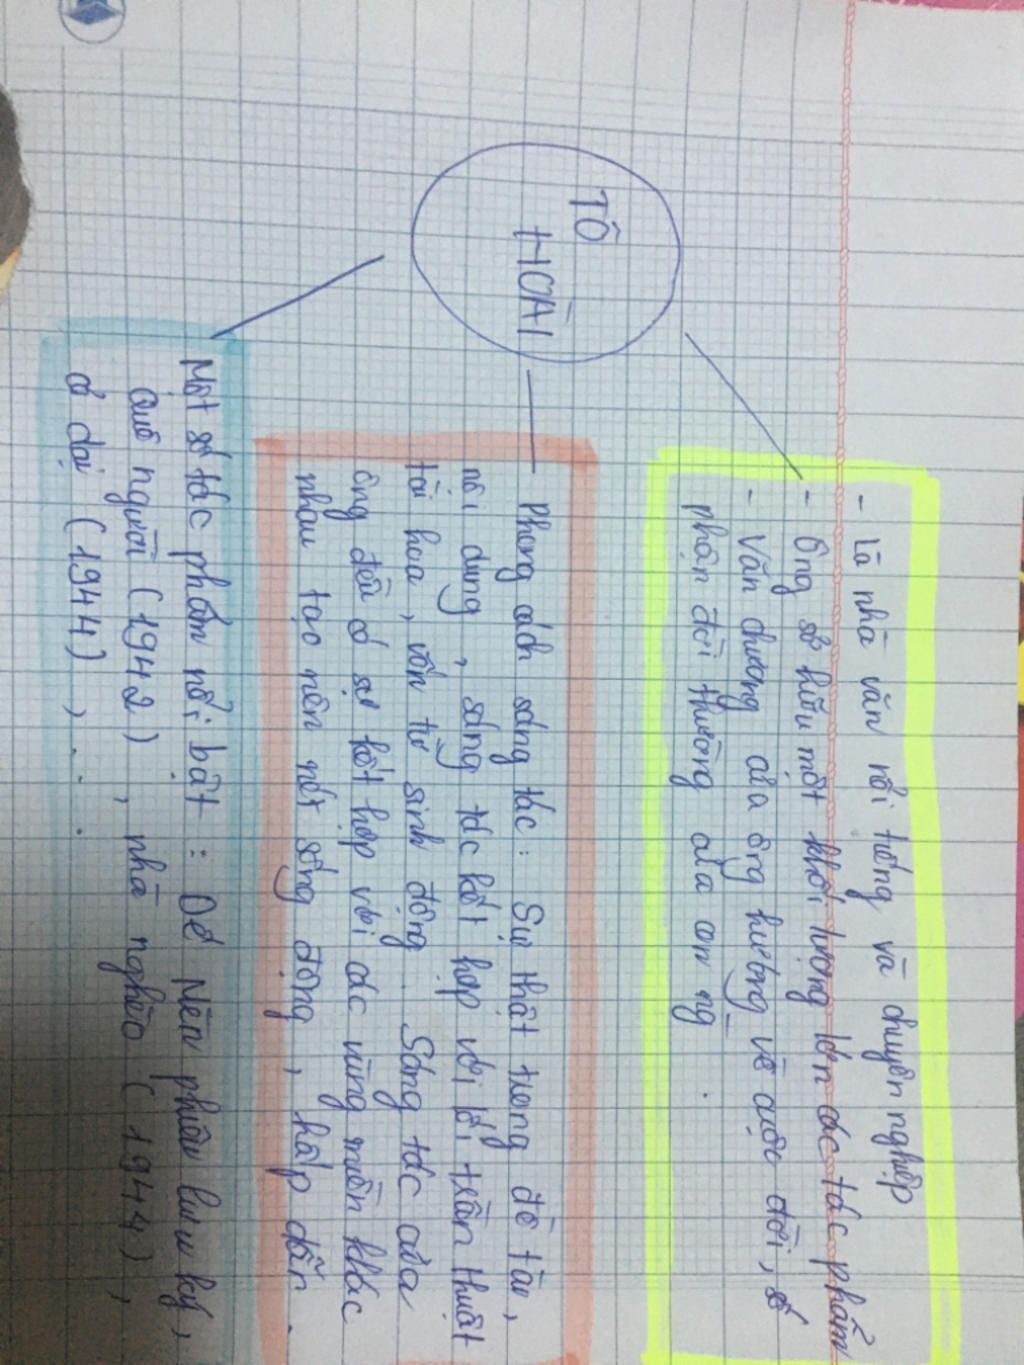 TÔ
HOÀI
- Là nhà văn nổi tiếng và chuyên nghiệp
- Ông sở hữu một khối lượng lớn các tác phẩm
- Văn chương của ông hướng về cuộc đời, số
phận đời thường của con ng̅.
Phong cách sáng tác: Sự thật trong đề tài,
nội dung, sáng tác kết hợp với lối trần thuật
tài hoa, vốn từ sinh động. Sáng tác của
ông đều có sự kết hợp với các vùng miền khác
nhau tạo nên nét sống động, hấp dẫn.
Một số tác phẩm nổi bật: Dế Mèn phiêu lưu ký,
Quê người (1942), nhà nghèo (1944),
cỏ dại (1944), ...